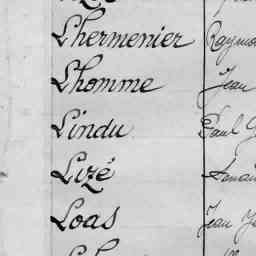 Lhermenier Raymo
Lhomme Jean
Lindu Paul G
Lizé
Loas Jean